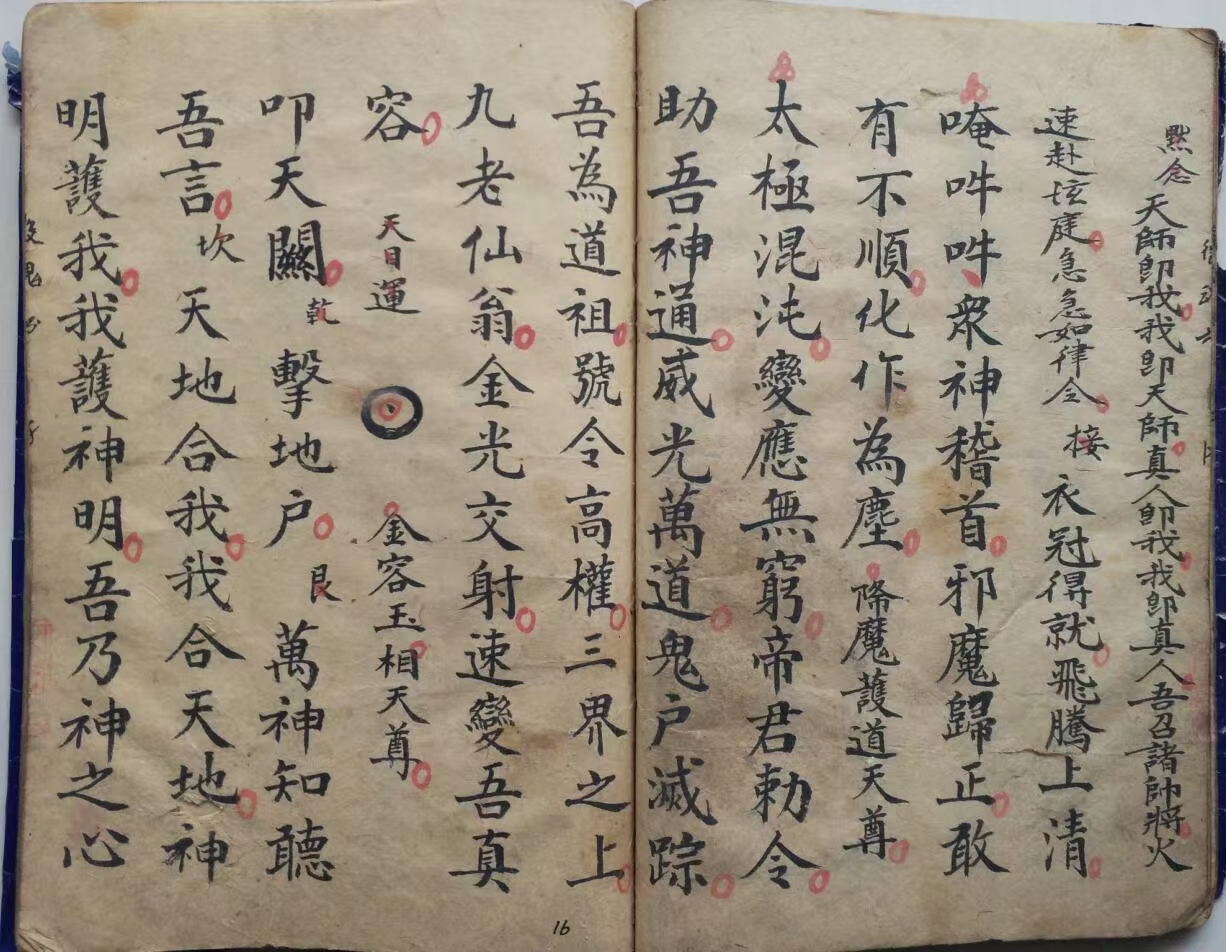 默念 天師即我我即天師真人即我我即真人吾召諸帥將火
速赴垓庭急急如律令 接 衣冠得就飛騰上清
唵吽吽衆神稽首邪魔歸正敢
有不順化作為塵 降魔護道天尊
太極混沌變應無窮帝君勅令
助吾神通威光萬道鬼户滅踪
吾為道祖號令高權三界之上
九老仙翁金光交射速變吾真
容 天目運 金容玉相天尊
叩天關 乾 擊地户 艮 萬神知聽
吾言 坎 天地合我我合天地神
明護我我護神明吾乃神之心
16